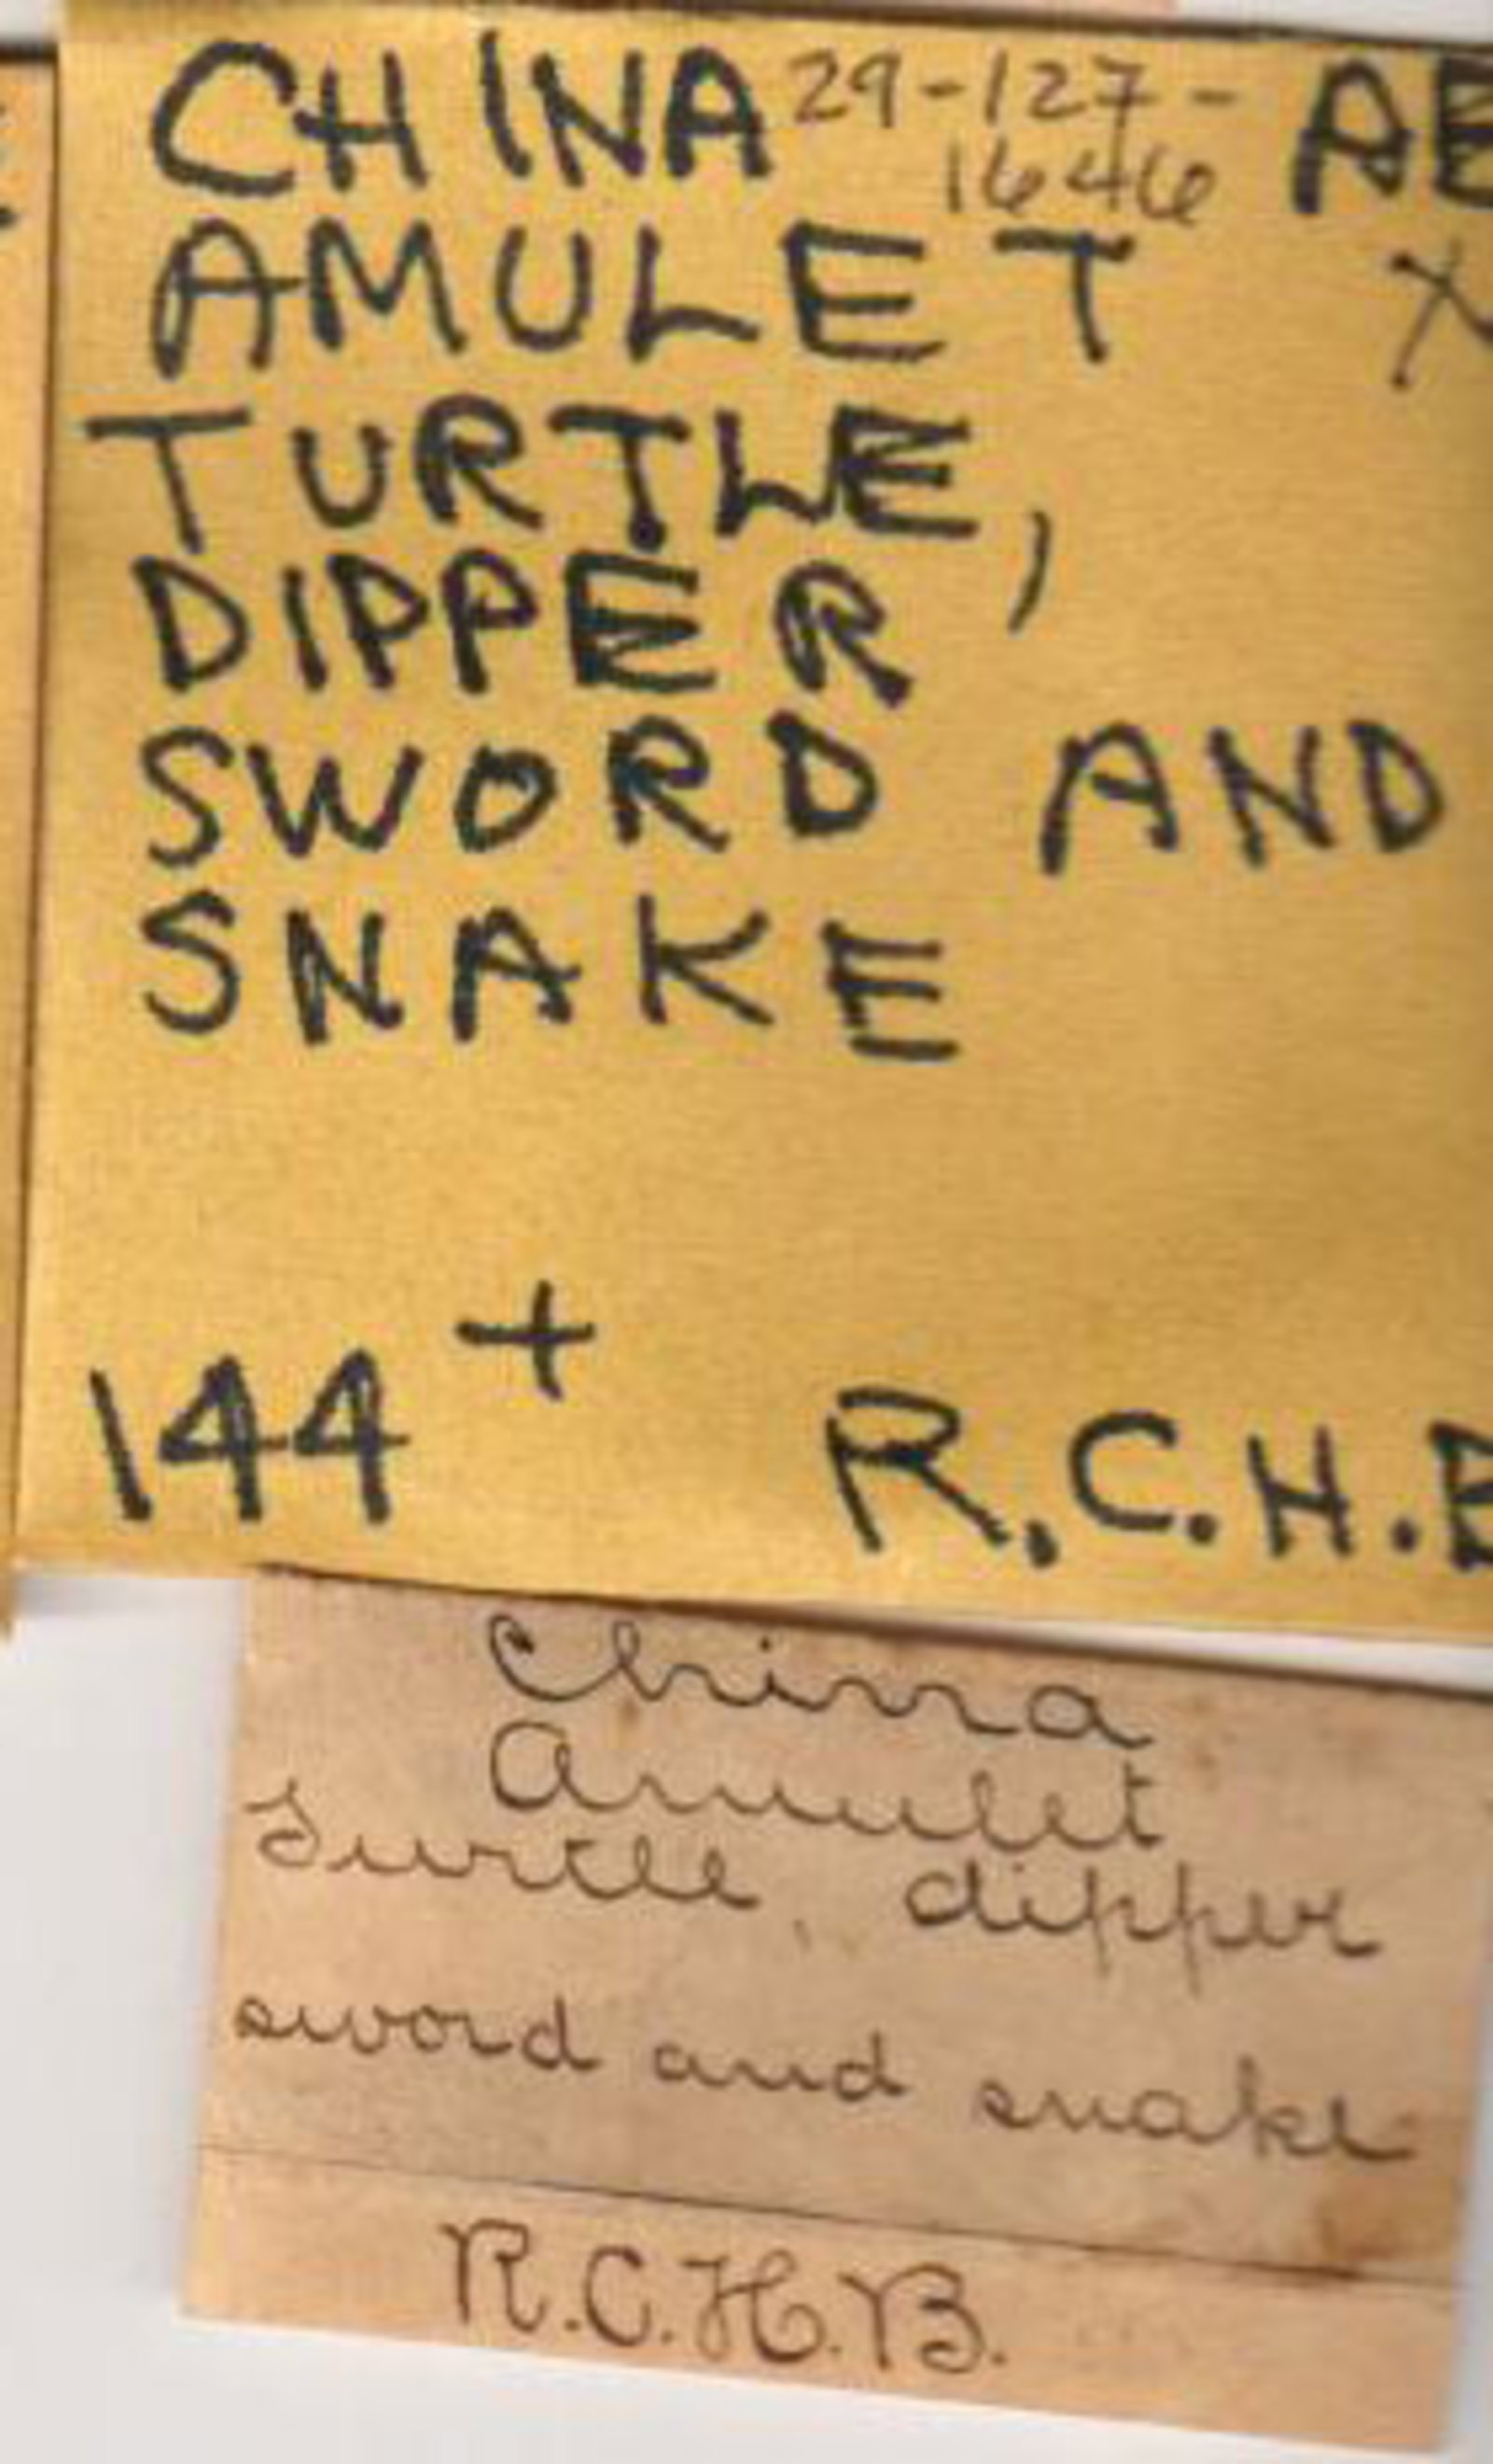 CHINA 29-127- AE
1646
AMULET X
TURTLE,
DIPPER
SWORD AND
SNAKE
144+ R.C.H.B
China
Amulet
Turtle, dipper
sword and snake
R.C.H.B.